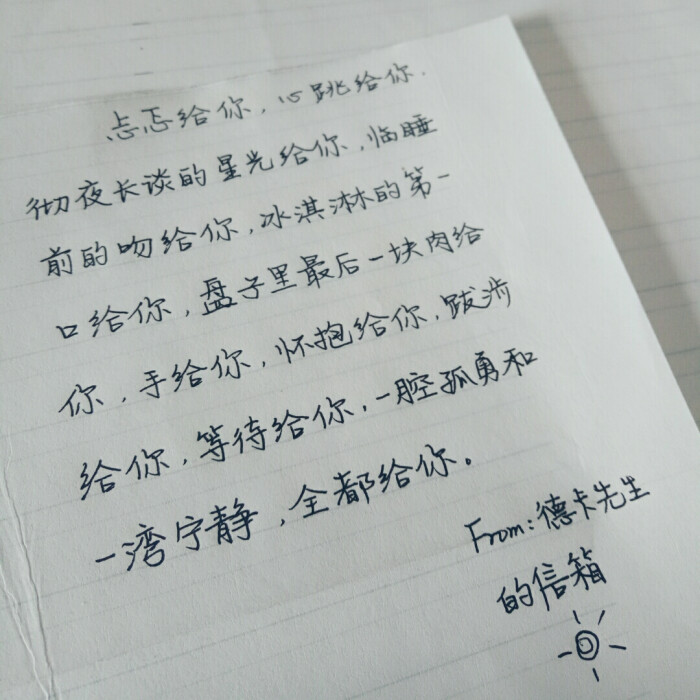 忐忑给你,心跳给你.
彻夜长谈的星光给你,临睡
前的吻给你,冰淇淋的第一
口给你,盘子里最后一块肉给
你,手给你,怀抱给你,跋涉
给你,等待给你,一腔孤勇和
一湾宁静,全都给你。
From:德卡先生
的信箱